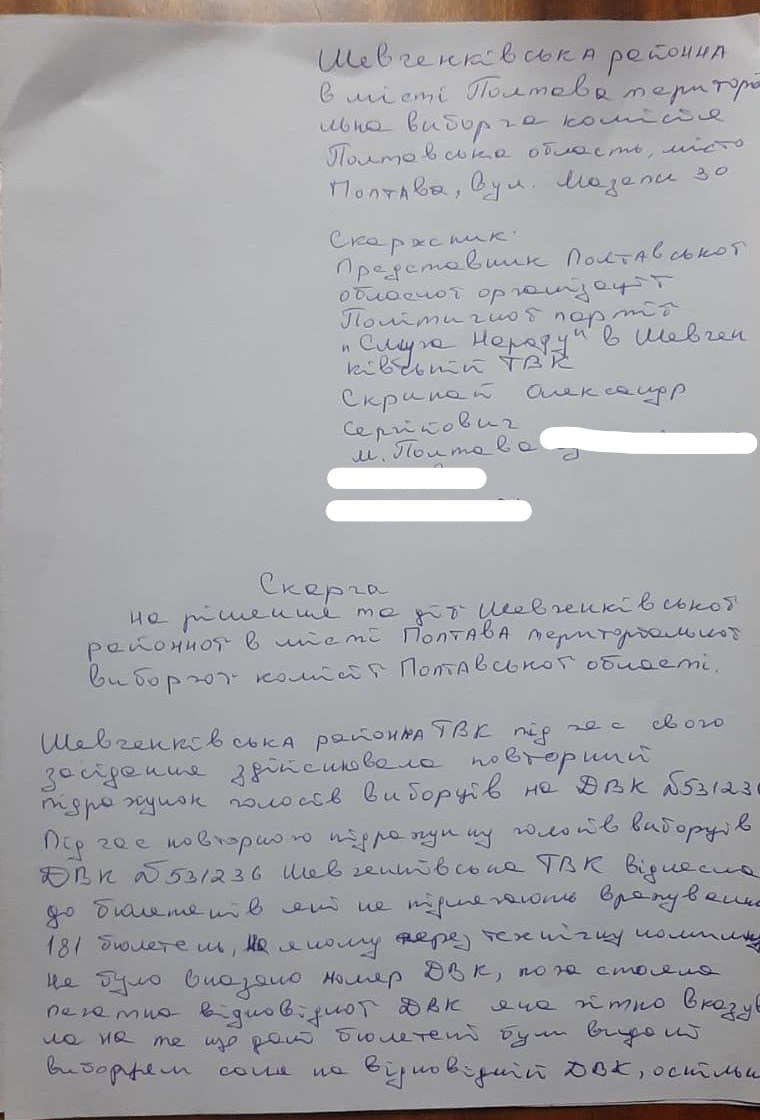 Шевченківська районна
в місті Полтава територіа
льна виборча комісія
Полтавська область, місто
Полтава, вул. Мазепи 30
Скаржник:
Представник Полтавської
обласної організації
Політичної партії
"Слуга Народу" в Шевчен
ківській ТВК
Скрипай Олександр
Сергійович
м. Полтава
Скарга
на рішення та дії Шевченківської
районної в місті Полтава територіальної
виборчої комісії Полтавської області.
Шевченківська районна ТВК під час свого
засідання здійснювала повторний
підрахунок голосів виборців на ДВК №531236
Під час повторного підрахунку голосів виборців
ДВК №531236 Шевченківська ТВК віднесла
до бюлетенів які не підлягають врахуванню
181 бюлетень, на якому через технічну помилку
не було вказано номер ДВК, поза стояла
печатка відповідної ДВК яка чітко вказува
ла на те що дані бюлетені були видані
виборцям саме на відповідній ДВК, оскільки